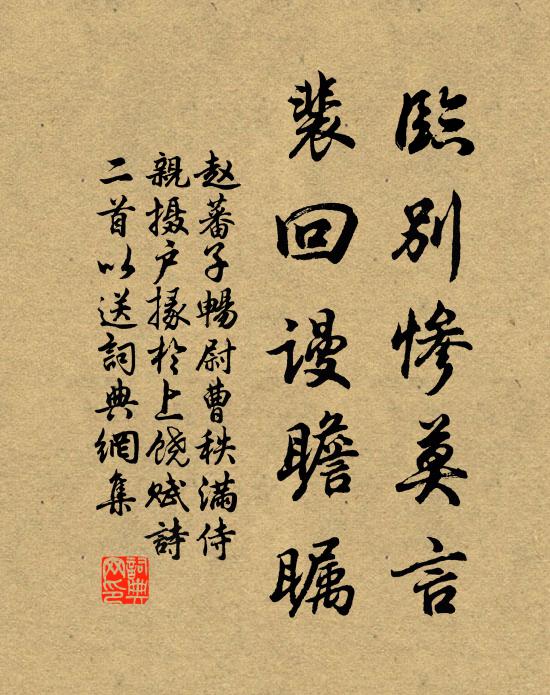 臨別慘莫言
裴回謾瞻瞩
赵蕃子暢尉曹秩滿侍
親摄户掾於上饶赋詩
二首以送詞典網集
詞典网印